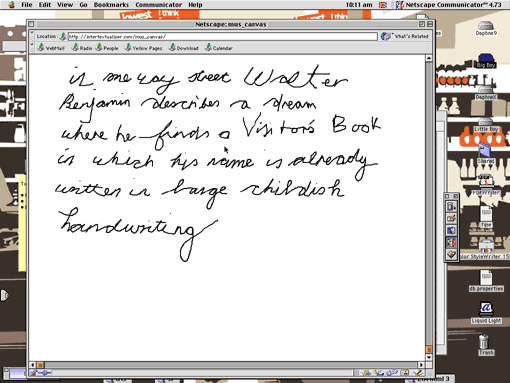 File Edit View Go Bookmarks Communicator Help 10:11 am Netscape Communicator™ 4.73
Netscape: mus_canvas
Location: http://intertextualizer.com/mus_canvas/ What's Related
WebMail Radio People Yellow Pages Download Calendar
in one way street Walter
Benjamin describes a dream
where he finds a Visitor's Book
in which his name is already
written in large childish
handwriting
Daphne9
Big Boy
Daphne8
Little Boy
Shared
Title
Color StyleWriter 15
db properties
Liquid Light
Trash